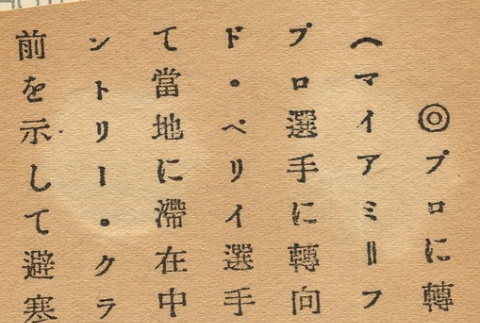 ◎プロに轉
（マイアミ＝フ
プロ選手に轉向
ド・ペリイ選手
て當地に滯在中
ントリー・クラ
前を示して避寒